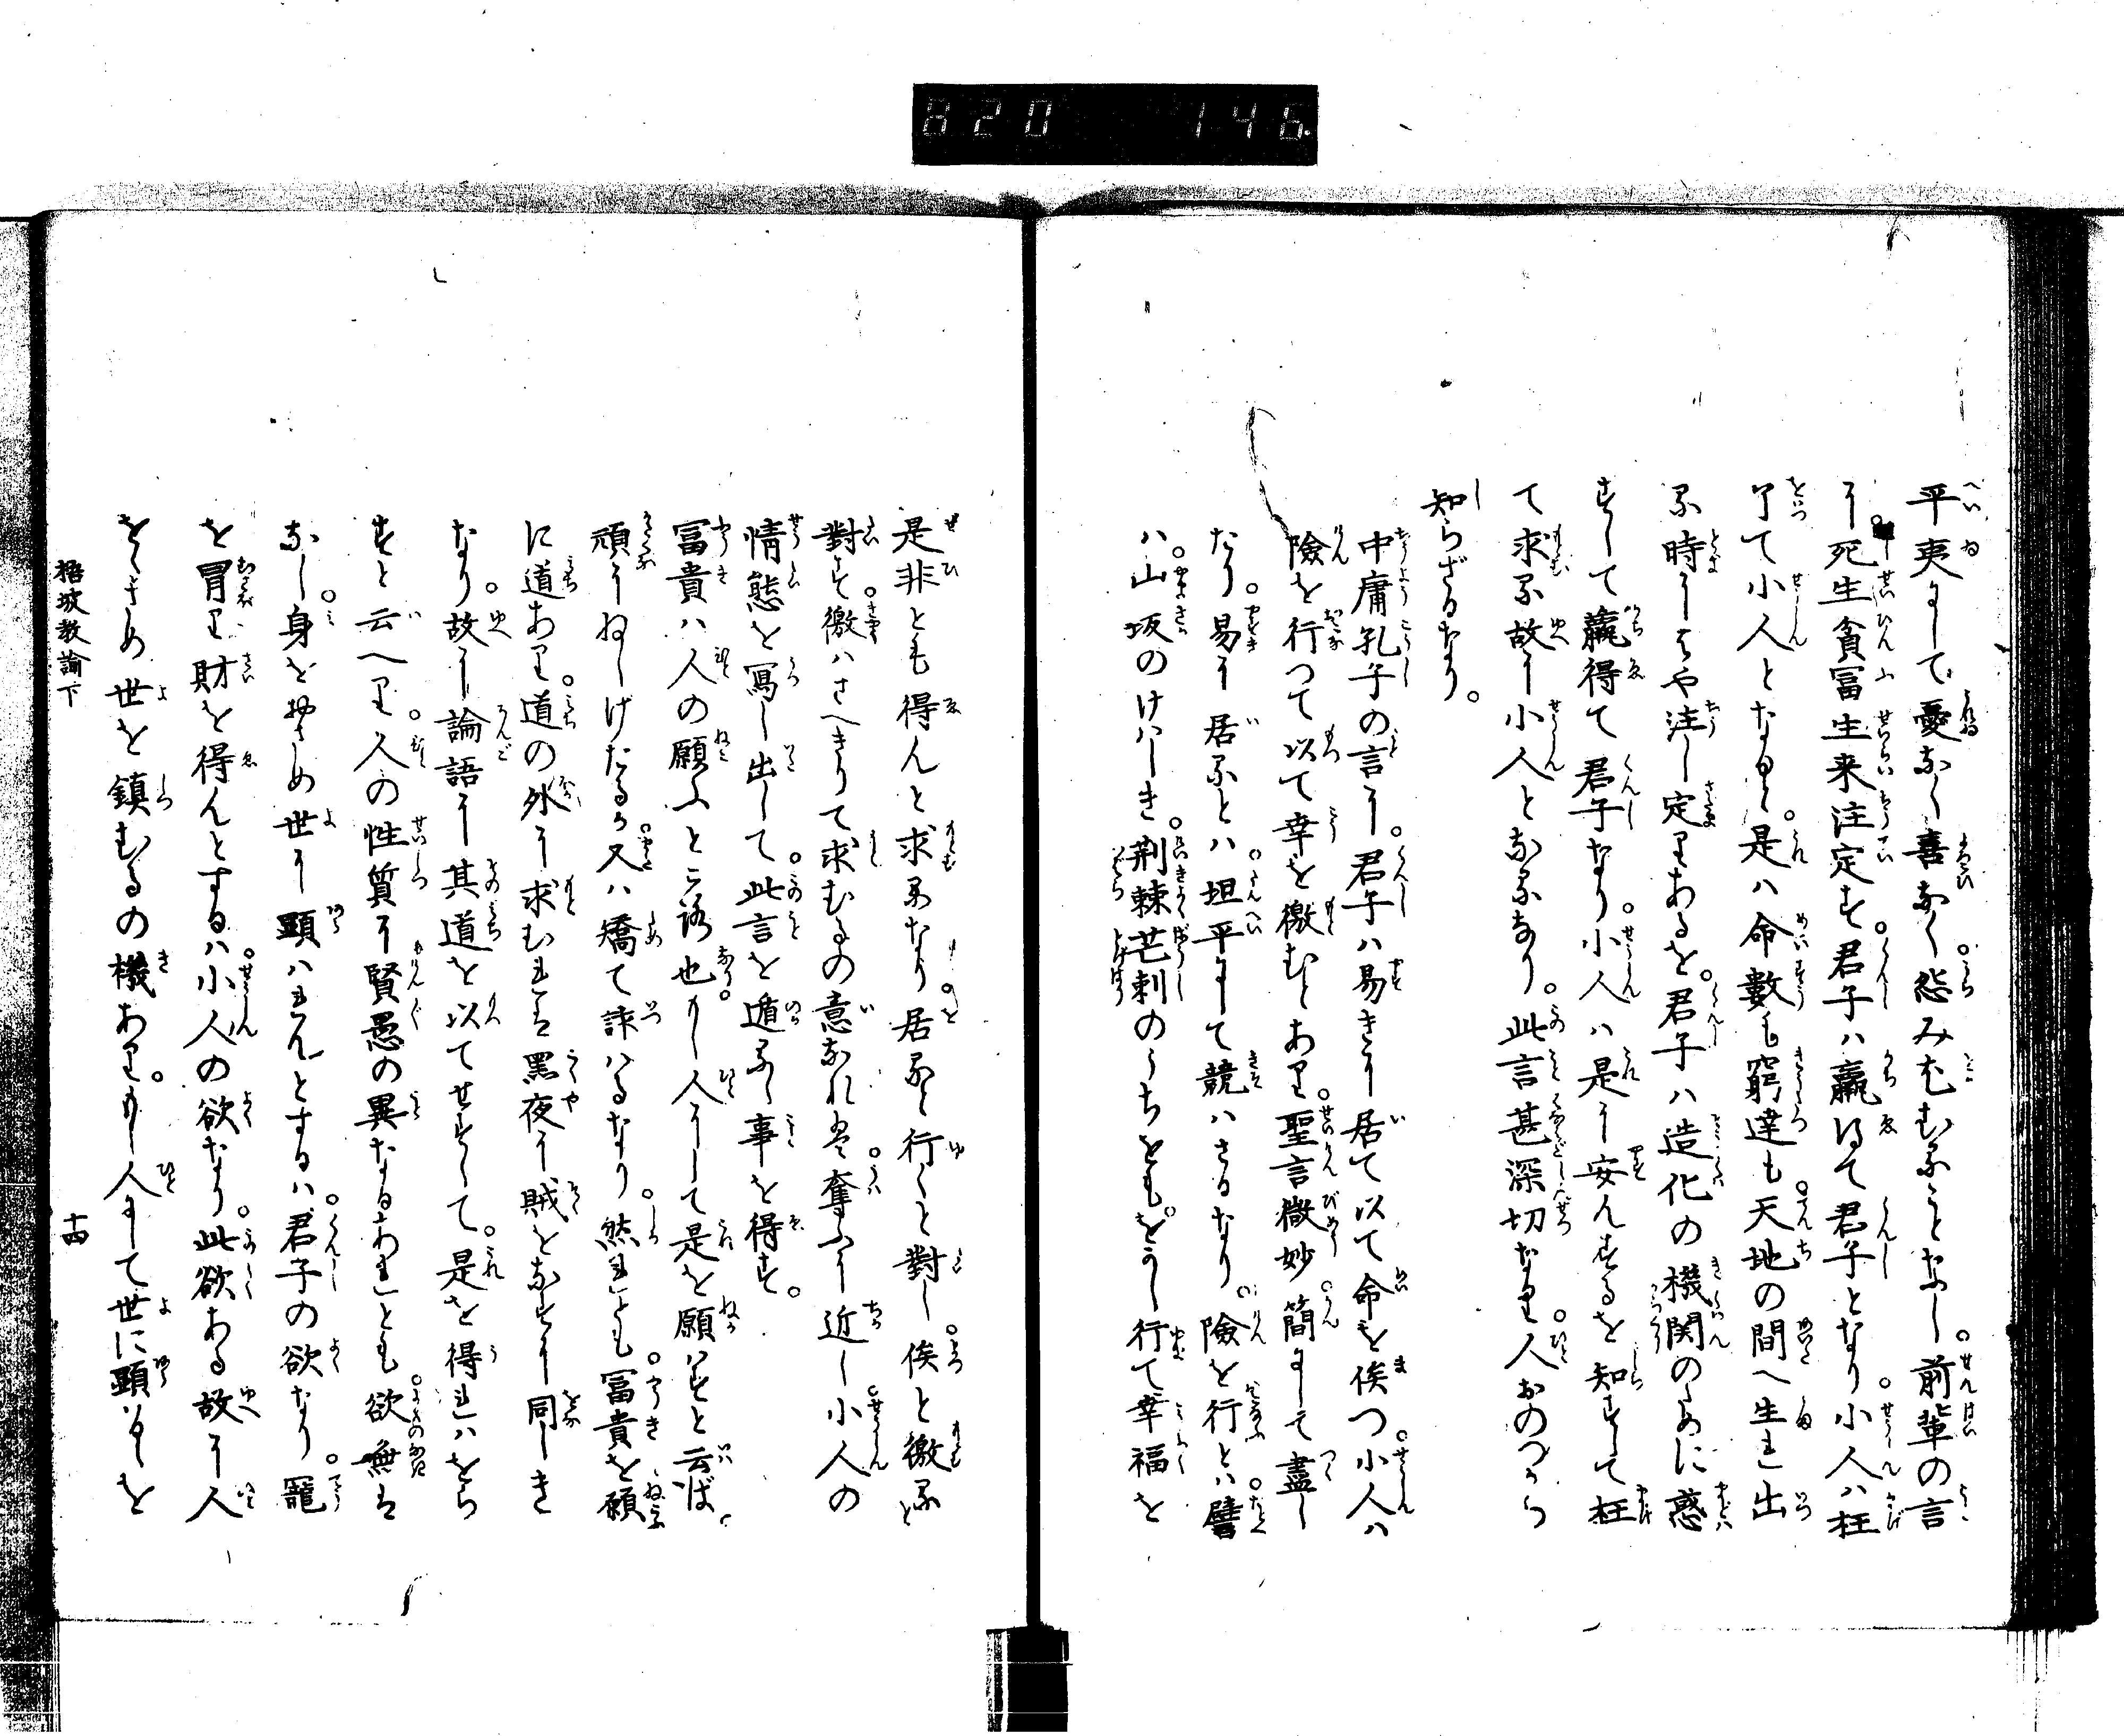 820 146.
平夷にして憂なく喜なく怨みむさむることなし前輩の言
に死生貧冨生来注定す君子ハ贏得て君子となり小人ハ枉
了て小人となると是ハ命數も窮達も天地の間へ生れ出
る時にはや注し定りあるを君子ハ造化の機関のために惑
すして贏得て君子なり小人ハ是に安んするを知すして枉
て求る故に小人となるなり此言甚深切なり人おのつから
知らざるなり
中庸孔子の言に君子ハ易きに居て以て命を俟つ小人ハ
險を行つて以て幸を徼むとあり聖言微妙簡にして盡し
たり易に居るとハ坦平にして競ハさるなり險を行とハ譬
ハ山坂のけハしき荊棘芒刺のうちをもをかし行て幸福を
是非とも得んと求るなり居ると行くと對し俟と徼ると
對す徼ハさへきりて求むるの意なれは奪ふに近し小人の
情態を寫し出して此言を遁るゝ事を得す
冨貴ハ人の願ふところ也もし人にして是を願ハすと云ば
頑にねしけたるか又ハ矯て誄ハるなり然れとも冨貴を願
に道あり道の外に求むれは黑夜に賊をなすに同しき
なり故に論語に其道を以てせすして是を得れハをら
すと云へり人の性質に賢愚の異なるあれとも欲無は
なし身をおさめ世に顕ハれんとするハ君子の欲なり寵
を冒り財を得んとするハ小人の欲なり此欲ある故に人
をおさめ世を鎮むるの機ありもし人にして世に顕ハるゝを
梧坡教諭下
十四